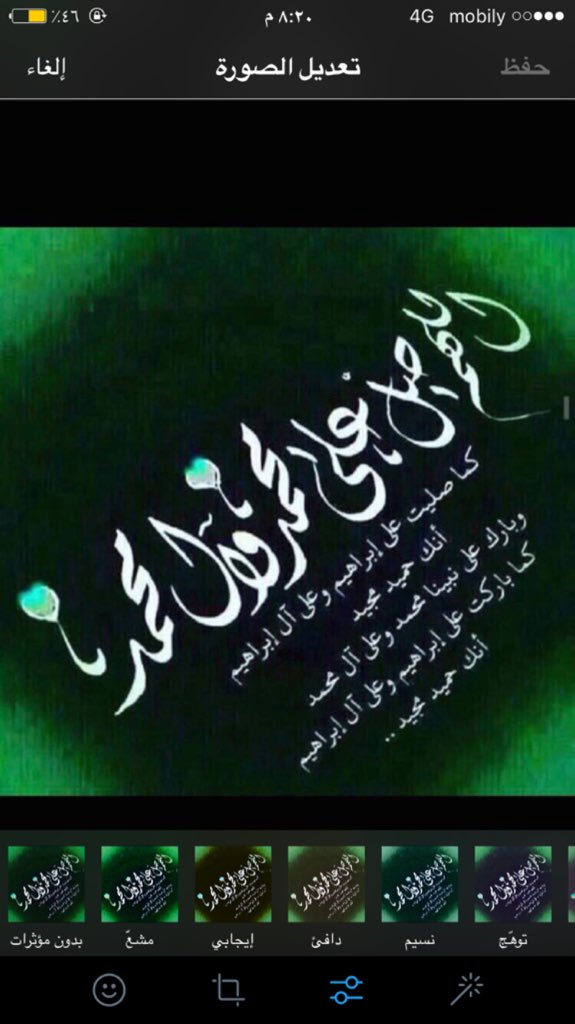 ٤٦٪ ٨:٢٠ م 4G mobily
إلغاء تعديل الصورة حفظ
اللهم
صل على محمد وآل محمد
كما صليت على إبراهيم وعلى آل إبراهيم
أنك حميد مجيد
وبارك على نبينا محمد وعلى آل محمد
كما باركت على إبراهيم وعلى آل إبراهيم
أنك حميد مجيد ..
بدون مؤثرات مشعّ إيجابي دافئ نسيم توهّج